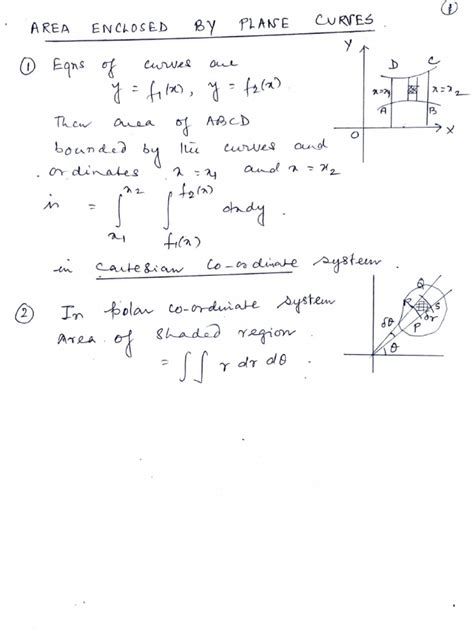 ①
AREA ENCLOSED BY PLANE CURVES
① Eqns of curves are
y = f₁(x), y = f₂(x)
Then area of ABCD
bounded by the curves and
ordinates x = x₁ and x = x₂
is = ∫_{x₁}^{x₂} ∫_{f₁(x)}^{f₂(x)} dxdy.
in Cartesian Co-ordinate system.
Y
D C
x=x₁ x=x₂
A B
O X
② In polar co-ordinate system
Area of shaded region
= ∫∫ r dr dθ.
Q
R S
P dr
δθ
θ